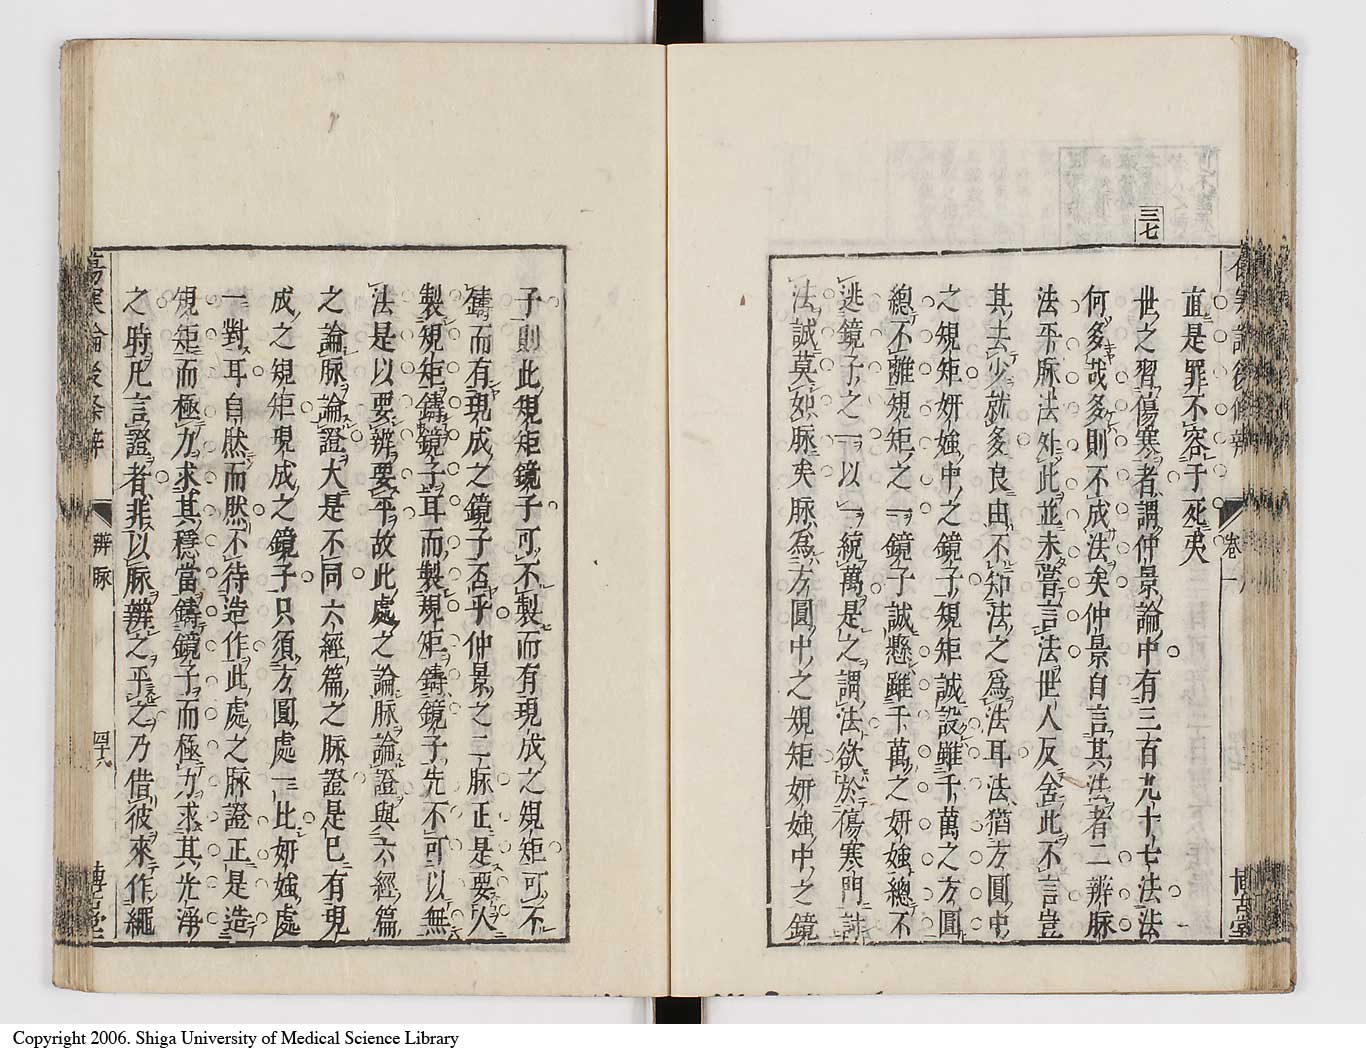 三七
直是罪不容于死夷
世之習傷寒者謂仲景論中有三百九十七法法
何多哉多則不成法矣仲景自言其法者二辨脉
法平脉法外此並未嘗言法世人反舍此不言豈
其去少就多良由不知法之爲法耳法猶方圓中
之規矩姸媸中之鏡子規矩誠設雖千萬之方圓
總不離規矩之一鏡子誠懸雖千萬之姸媸總不
逃鏡子之一以一統萬是之謂法欲於傷寒門討
法誠莫如脉矣脉爲方圓中之規矩姸媸中之鏡
卷一
博古堂
子則此規矩鏡子可不製而有現成之規矩可不
鑄而有現成之鏡子否乎仲景之二脉正是要人
製規矩鑄鏡子耳而製規矩鑄鏡子先不可以無
法是以要辨要平故此處之論脉論證與六經篇
之論脉論證大是不同六經篇之脉證是已有現
成之規矩現成之鏡子只須方圓處一比姸媸處
一對耳自然而然不待造作此處之脉證正是造
規矩而極力求其穩當鑄鏡子而極力求其光淨
之時凡言證者非以脉辨之平之乃借彼來作繩
傷寒論後條辨
辨脉
四十六
博古堂
Copyright 2006. Shiga University of Medical Science Library